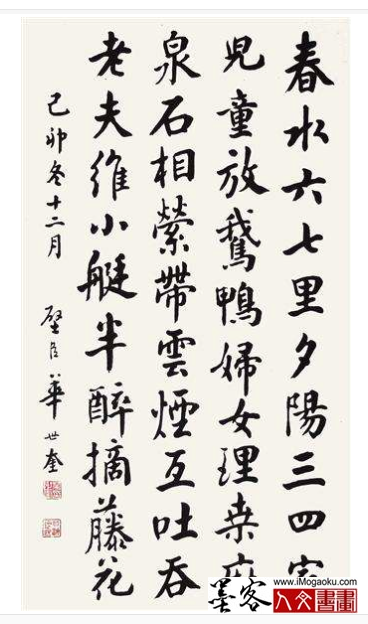 春水六七里夕陽三四家
兒童放鵞鴨婦女理桑麻
泉石相縈帶雲煙互吐吞
老夫維小艇半醉摘藤花
己卯冬十二月 璧臣華世奎
墨客
www.iMogaoku.com
人文書畫